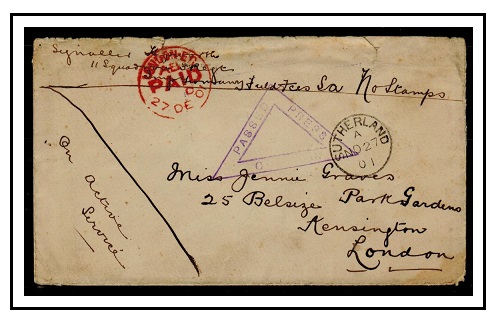 Signaller
11 Squad
No Stamps
LONDON
PAID
27 DE 01
PASSED PRESS
SUTHERLAND
A
NO 27
01
On active
Service
Miss Jennie Graves
25 Belsize Park Gardens
Kensington
London